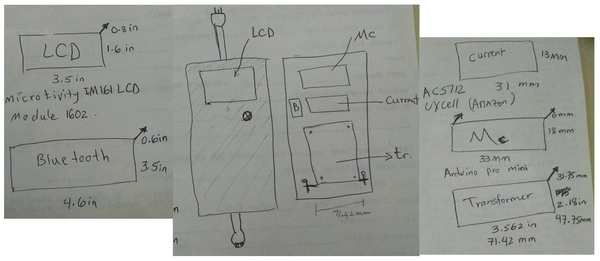 LCD
0.3in
1.6in
3.5in
Microtivity IM161 LCD
Module 1602.
Bluetooth
0.6in
3.5in
4.6in
LCD
MC
Current
B
tr.
71.42mm
Current
13mm
31 mm
AC5712
(Amazon)
Mc
6mm
18mm
33mm
Arduino pro mini
Transformer
31.75mm
2.18in
47.75mm
3.562 in
71.42 mm